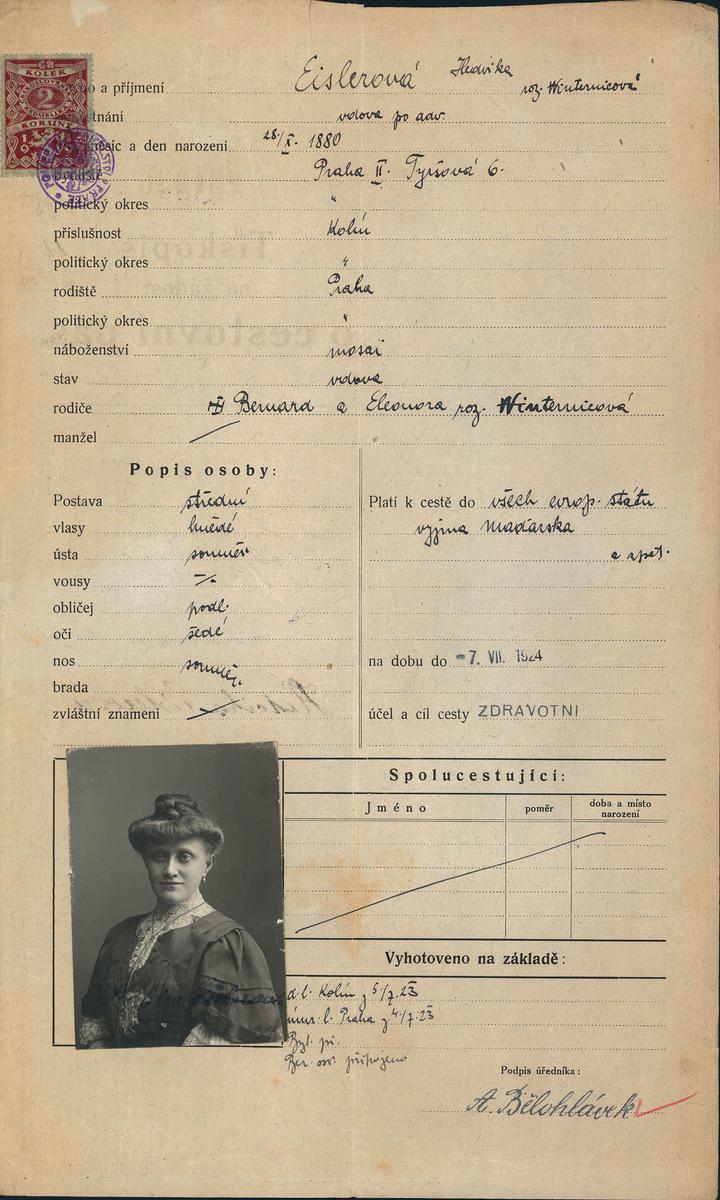 ČR
KOLEK
2
KORUNY
o a příjmení Eislerová Hedvika roz. Winternicová
tnání vdova po adv.
měsíc a den narození 28/X. 1880
bydliště Praha II. Tyršová 6.
politický okres "
příslušnost Kolín
politický okres "
rodiště Praha
politický okres "
náboženství mosai
stav vdova
rodiče Bernard a Eleonora roz. Winternicová
manžel
Popis osoby:
Postava střední
vlasy hnědé
ústa souměr.
vousy -/.
obličej podl.
oči šedé
nos souměr.
brada
zvláštní znamení
Platí k cestě do všech evrop. státu
vyjma Maďarska
a zpet.
na dobu do -7. VII. 1924
účel a cíl cesty ZDRAVOTNI
Spolucestující:
Jméno poměr doba a místo narození
Vyhotoveno na základě:
d. l. Kolín z 5/7.23
úmr. l. Praha z 4/7.23
Byt. př.
Ber. osv. připojeno
Podpis úředníka:
A. Bělohlávek